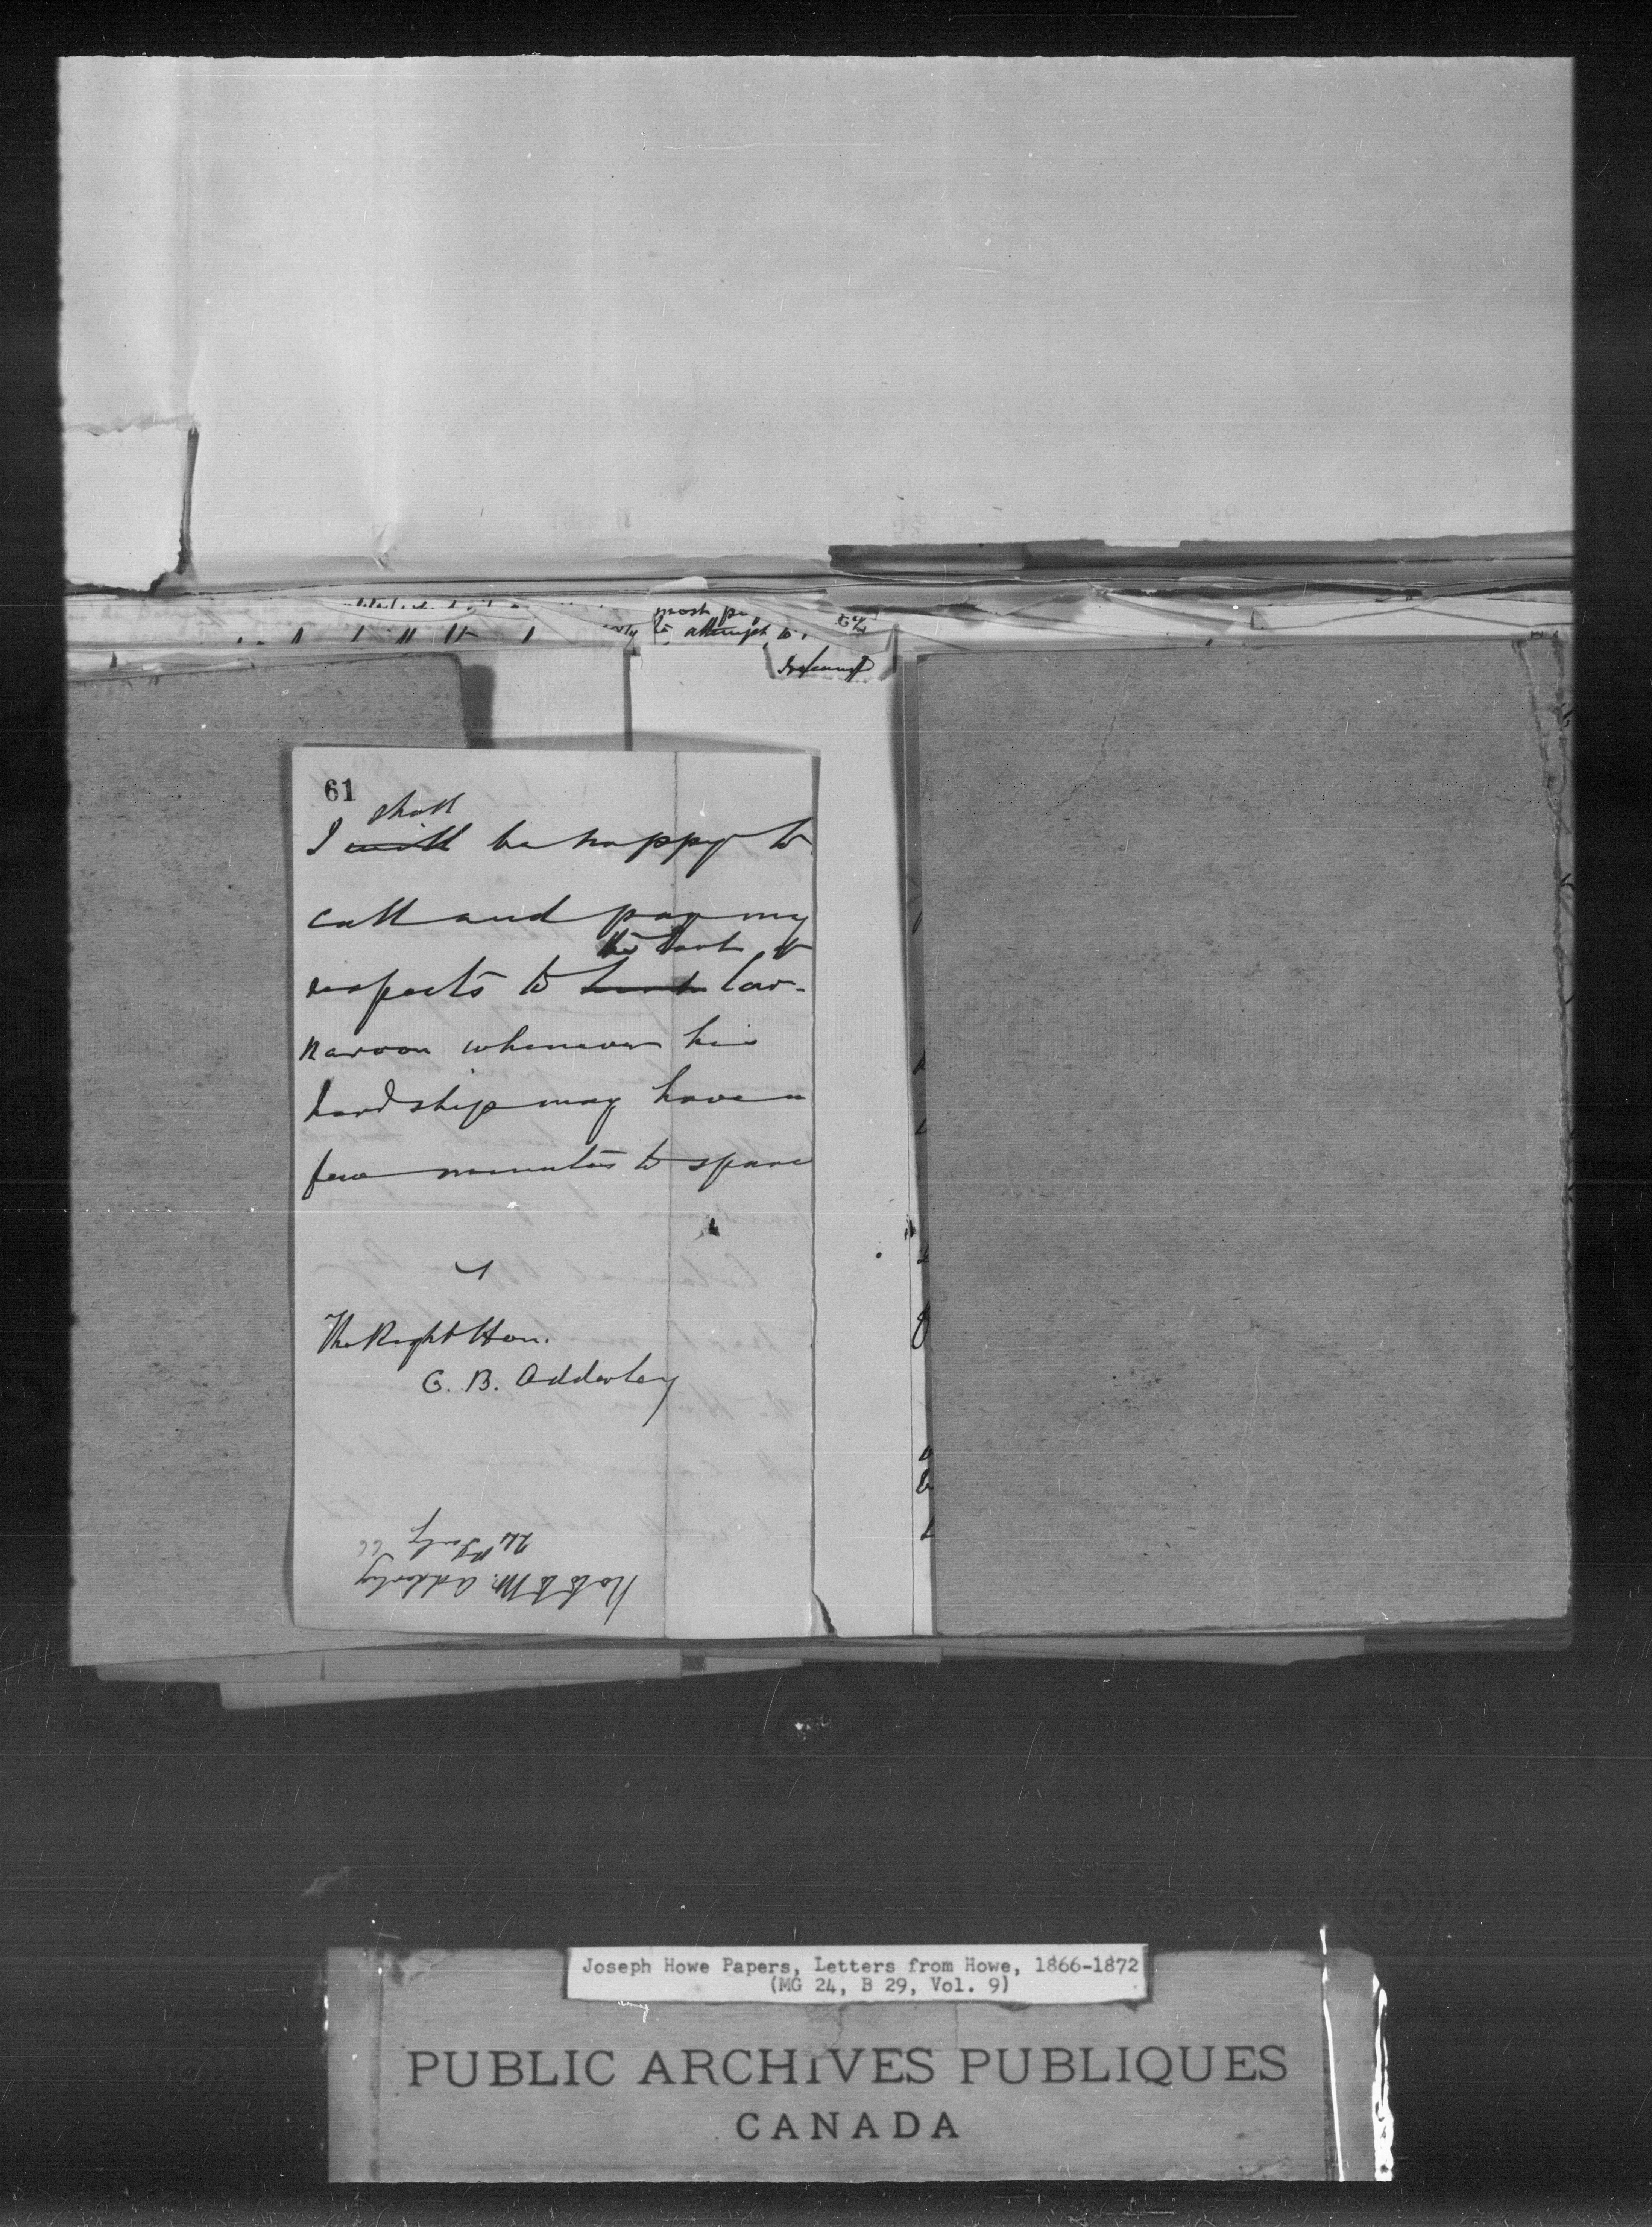 most
to attempt to
61
shall
I will be happy to
call and pay my
the Earl of
respects to Lord Car-
narvon whenever his
Lordship may have a
few minutes to spare
The Right Hon.
C. B. Adderley
Note to Mr. Adderley
24th July 66
Joseph Howe Papers, Letters from Howe, 1866-1872
(MG 24, B 29, Vol. 9)
PUBLIC ARCHIVES PUBLIQUES
CANADA